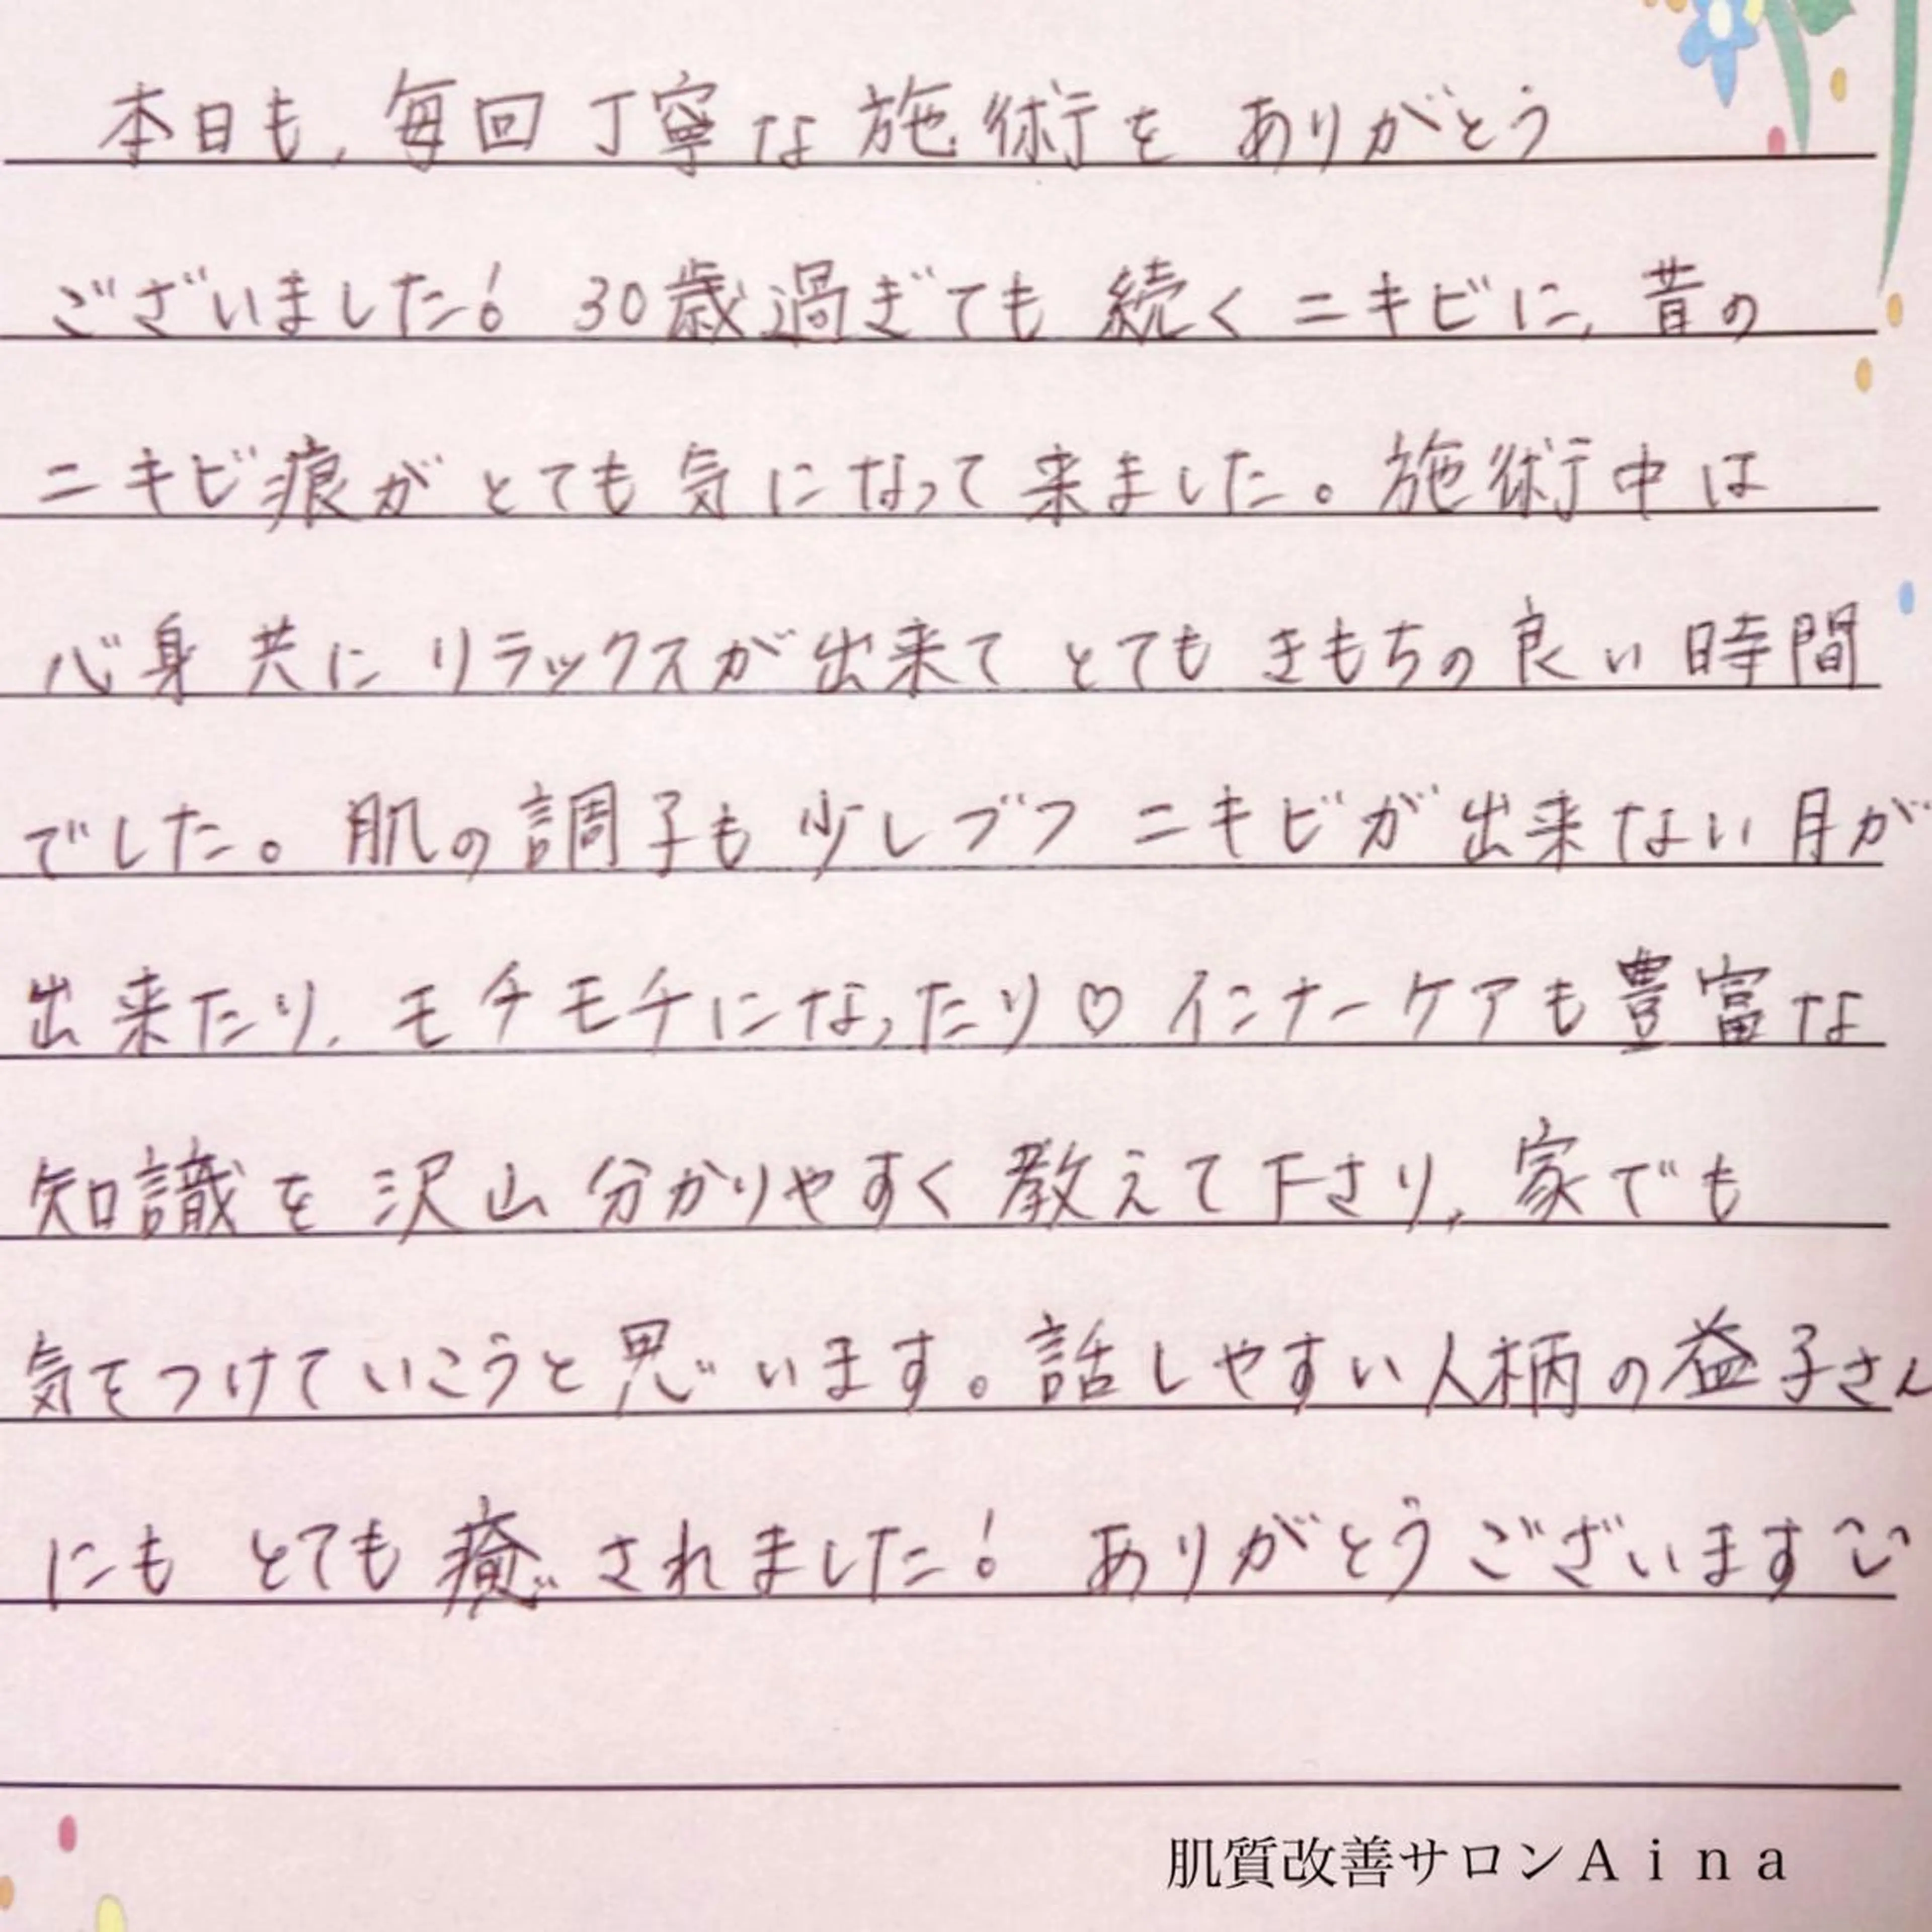 本日も、毎回丁寧な施術をありがとう
ございました！ 30歳過ぎても続くニキビに、昔の
ニキビ痕がとても気になって来ました。施術中は
心身共にリラックスが出来てとてもきもちの良い時間
でした。肌の調子も少しづつニキビが出来ない月が
出来たり、モチモチになったり♡インナーケアも豊富な
知識を沢山分かりやすく教えて下さり、家でも
気をつけていこうと思います。話しやすい人柄の益子さん
にもとても癒されました！ ありがとうございます
肌質改善サロンＡｉｎａ